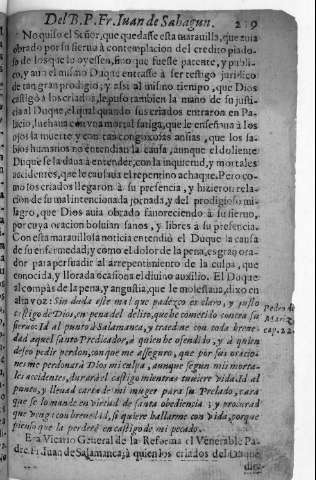 Del B. P. Fr. Iuan de Sahagun. 2 9
No quiso el Señor, que quedasse esta marauilla, que auia
obrado por su sieruo à contemplacion del credito piado-
so de los que lo oyessen, sino que fuesse patente, y publi-
co, y aun el mismo Duque entrasse à ser testigo juridico
de tan gran prodigio; y assi al mismo tiempo, que Dios
castigò à los criados, le puso tambien la mano de su justi-
cia al Duque, el qual quando sus criados entraron en Pa-
lacio, luchaua con vna mortal fatiga, que le enseñaua à los
ojos la muerte, y con tan congoxosas ansias, que los sa-
bios humanos no entendian la causa, aunque el doliente
Duque se la daua à entender, con la inquietud, y mortales
accidentes, que le causaua el repentino achaque. Pero co-
mo los criados llegaron à su presencia, y hizieron rela-
cion de su mal intencionada jornada, y del prodigioso mi-
lagro, que Dios auia obrado fauoreciendo à su sieruo,
por cuya oracion boluian sanos, y libres à su presencia.
Con esta marauillosa noticia entendiò el Duque la causa
de su enfermedad, y como el dolor de la pena, es gran ora-
dor para persuadir al arrepentimiento de la culpa, que
conocida, y llorada ocasiona el diuino auxilio. El Duque
al compàs de la pena, y angustia, que le molestaua, dixo en
alta voz: Sin duda este mal que padezco es claro, y justo
castigo de Dios, en pena del delito, que he cometido contra su
sieruo: Id al punto à Salamanca, y traedme con toda breue-
dad aquel santo Predicador, à quien he ofendido, y à quien
deseo pedir perdon, con que me asseguro, que por sus oracio-
nes me perdonarà Dios mi culpa, aunque segun mis morta-
les accidentes, durarà el castigo mientras tuuiere vida. Id al
punto, y lleuad carta de mi muger para su Prelado, para
que se lo mande en virtud de santa obediencia; y procurad
que venga con breuedad, si quiere hallarme con vida, porque
pienso que la perderè en castigo de mi pecado.
Era Vicario General de la Reforma el Venerable Pa-
dre Fr. Iuan de Salamanca, à quien los criados del Duque
Pedro de
Mariz,
cap. 22.